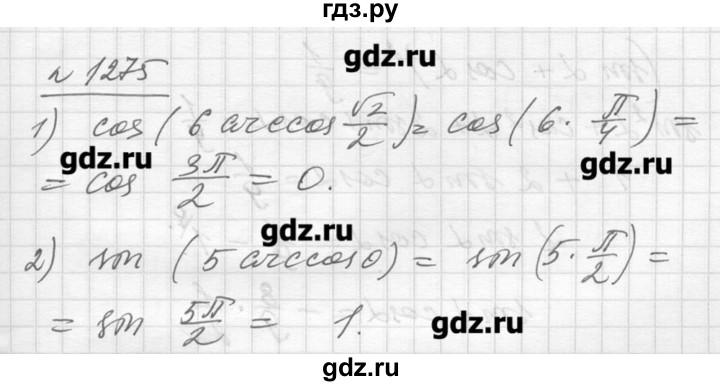 гдз.ру
gdz.ru
№ 1275
1) cos(6 arccos √2/2) = cos(6 · π/4) =
gdz.ru
gdz.ru
= cos 3π/2 = 0.
gdz.ru
2) sin (5 arccos 0) = sin(5 · π/2) =
= sin 5π/2 = 1.
gdz.ru
gdz.ru